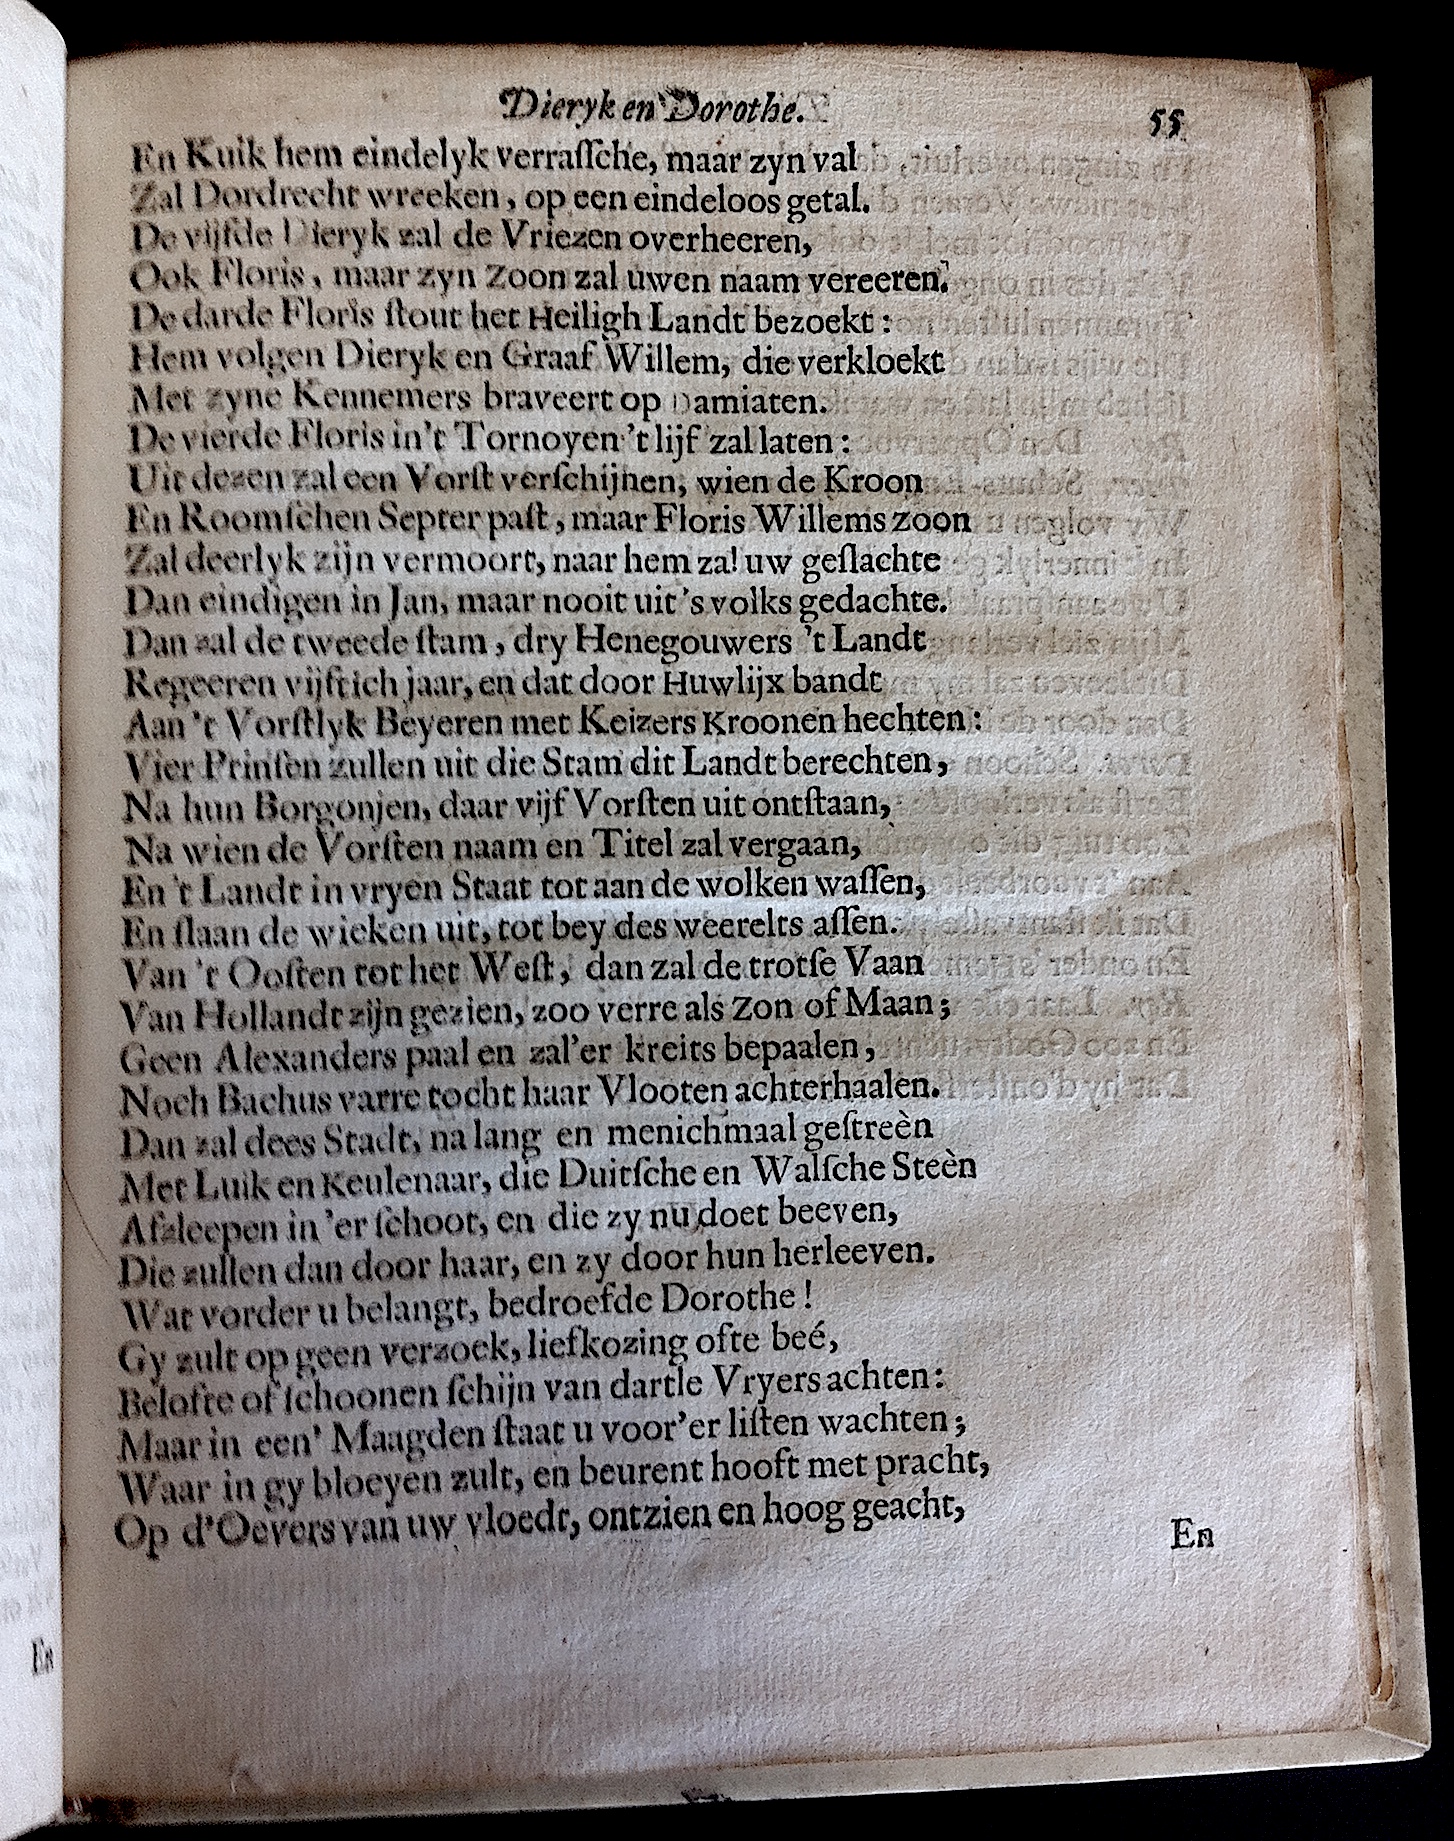 Dieryk en Dorothe.
55
En Kuik hem eindelyk verraſſche, maar zyn val
Zal Dordrecht wreeken, op een eindeloos getal.
De vijfde Dieryk zal de Vriezen overheeren,
Ook Floris, maar zyn Zoon zal uwen naam vereeren.
De darde Floris ſtout het Heiligh Landt bezoekt:
Hem volgen Dieryk en Graaf Willem, die verkloekt
Met zyne Kennemers braveert op Damiaten.
De vierde Floris in't Tornoyen 't lijf zal laten:
Uit dezen zal een Vorſt verſchijnen, wien de Kroon
En Roomſchen Septer paſt, maar Floris Willems zoon
Zal deerlyk zijn vermoort, naar hem zal uw geſlachte
Dan eindigen in Jan, maar nooit uit 's volks gedachte.
Dan zal de tweede ſtam, dry Henegouwers 't Landt
Regeeren vijftich jaar, en dat door Huwlijx bandt
Aan 't Vorſtlyk Beyeren met Keizers Kroonen hechten:
Vier Prinſen zullen uit die Stam dit Landt berechten,
Na hun Borgonjen, daar vijf Vorſten uit ontſtaan,
Na wien de Vorſten naam en Titel zal vergaan,
En 't Landt in vryen Staat tot aan de wolken waſſen,
En ſlaan de wieken uit, tot bey des weerelts aſſen.
Van 't Ooſten tot het Weſt, dan zal de trotſe Vaan
Van Hollandt zijn gezien, zoo verre als Zon of Maan;
Geen Alexanders paal en zal'er kreits bepaalen,
Noch Bachus varre tocht haar Vlooten achterhaalen.
Dan zal dees Stadt, na lang en menichmaal geſtreèn
Met Luik en Keulenaar, die Duitſche en Walſche Steèn
Afzleepen in 'er ſchoot, en die zy nu doet beeven,
Die zullen dan door haar, en zy door hun herleeven.
Wat vorder u belangt, bedroefde Dorothe!
Gy zult op geen verzoek, liefkozing ofte beé,
Belofte of ſchoonen ſchijn van dartle Vryers achten:
Maar in een' Maagden ſtaat u voor'er liſten wachten;
Waar in gy bloeyen zult, en beurent hooft met pracht,
Op d'Oevers van uw vloedt, ontzien en hoog geacht,
En
En